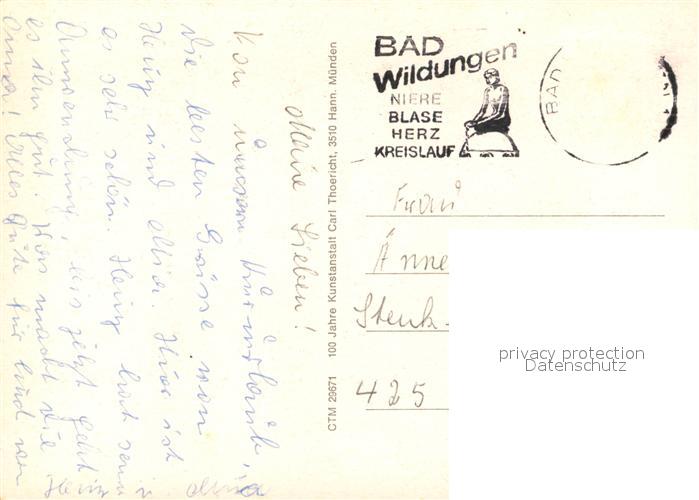 Meine Lieben!
Von unserem Kururlaub,
die besten Grüsse von
Heinz und Mia. Hier ist
es sehr schön. Heinz hat seine
Anwendung, bis jetzt geht
es ihm gut. Was macht die
Oma! Alles Gute für Euch von
Heinz u. Mia
CTM 29671 100 Jahre Kunstanstalt Carl Thoericht, 3510 Hann. Münden
BAD
Wildungen
NIERE
BLASE
HERZ
KREISLAUF
BAD
Frau
Änne
Stenk
425
privacy protection
Datenschutz